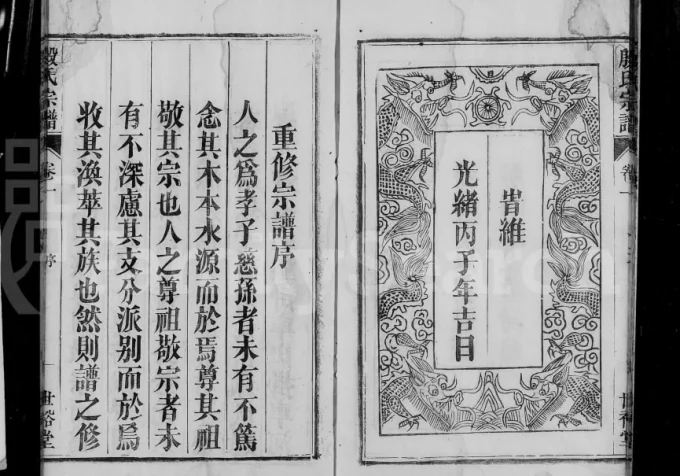 殷氏宗譜
卷一
旹維
光緒丙子年吉日
世裕堂
重修宗譜序
人之爲孝子慈孫者未有不篤
念其木本水源而於焉尊其祖
敬其宗也人之尊祖敬宗者未
有不深慮其支分派别而於焉
收其渙萃其族也然則譜之修
殷氏宗譜
卷一
序
一
世裕堂